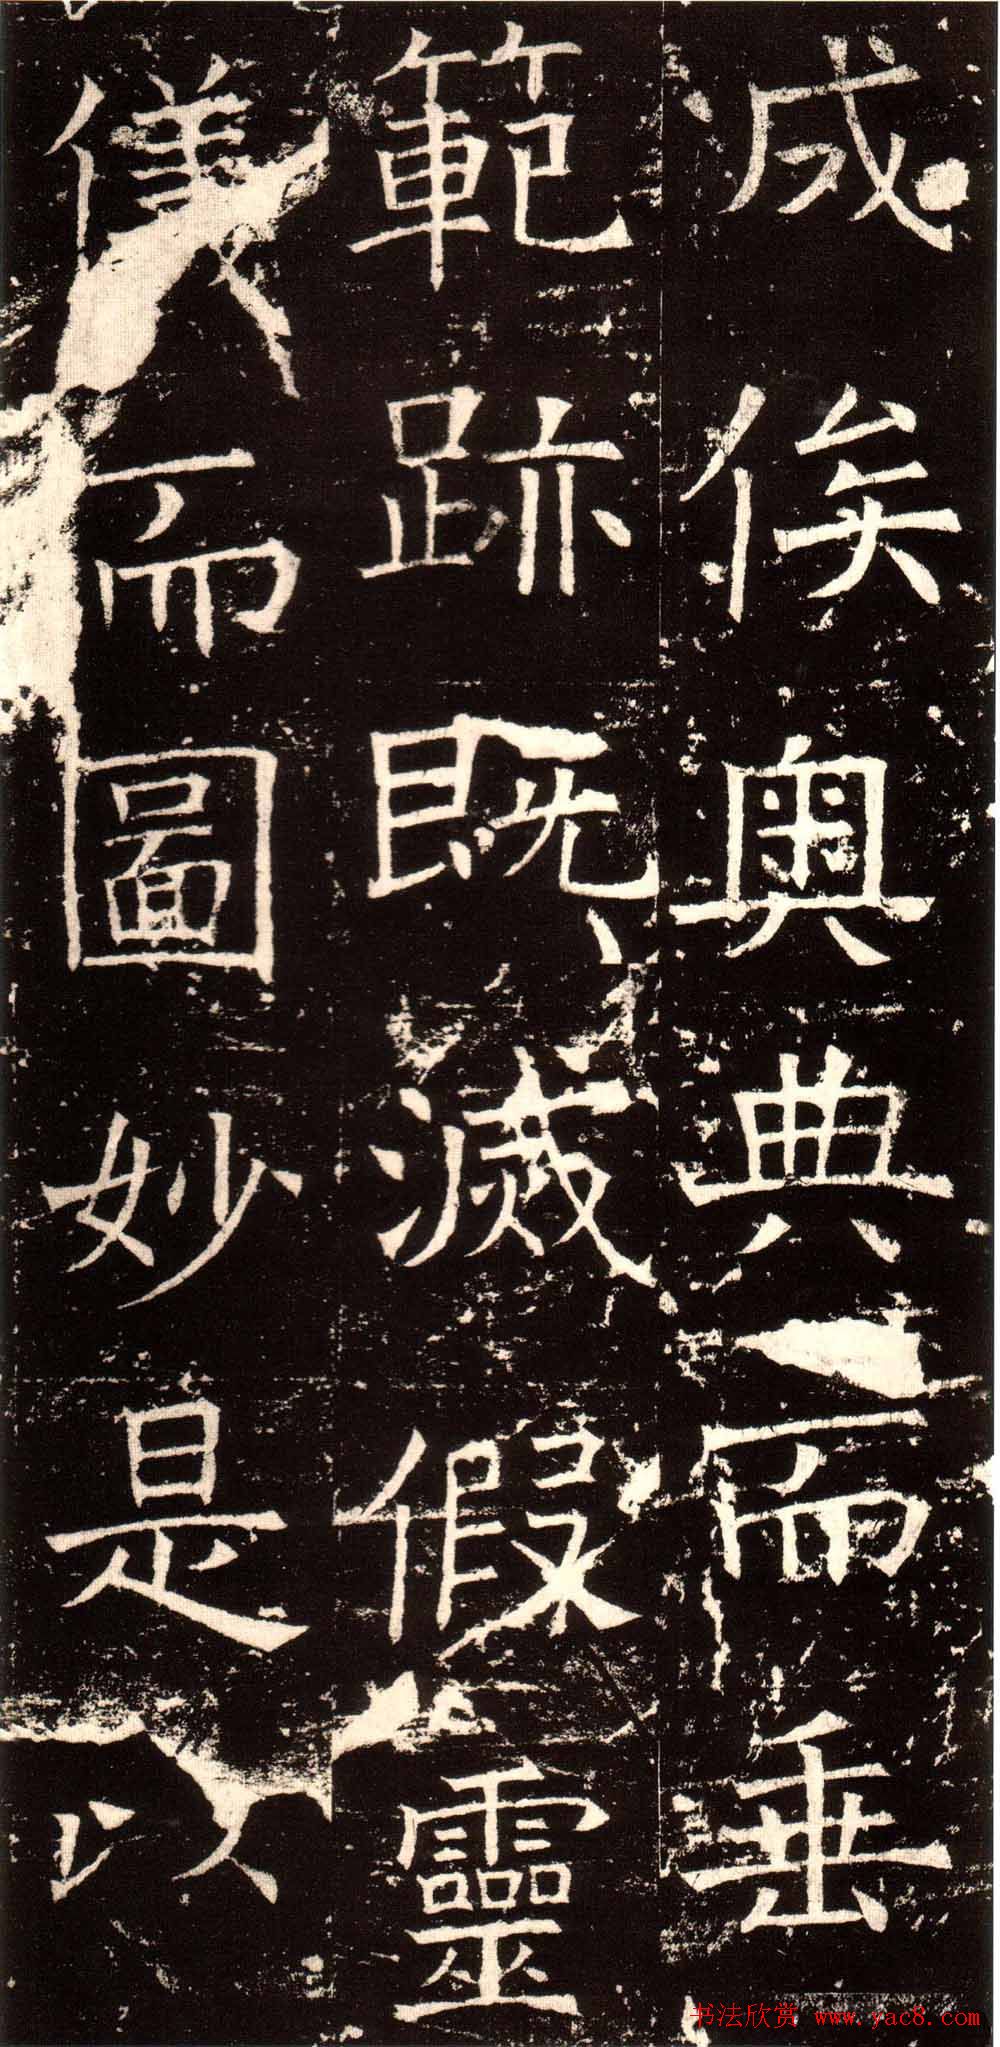 成俟奧典而垂
範跡既滅假靈
儀而圖妙是以
书法欣赏 www.yac8.com